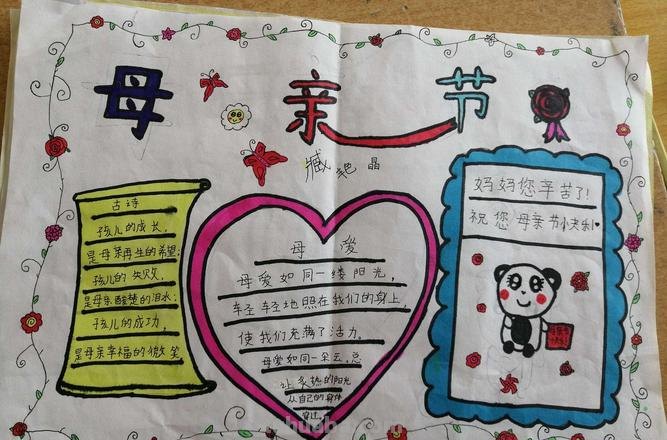 母亲节
臧艳晶
古诗
孩儿的成长，
是母亲再生的希望；
孩儿的失败，
是母亲酸楚的泪水；
孩儿的成功，
是母亲幸福的微笑
母爱
母爱如同一缕阳光，
轻轻地照在我们的身上，
使我们充满了活力。
母爱如同一朵云，总
让炙热的阳光
从自己的身体
穿过。
妈妈您辛苦了！
祝您母亲节快乐